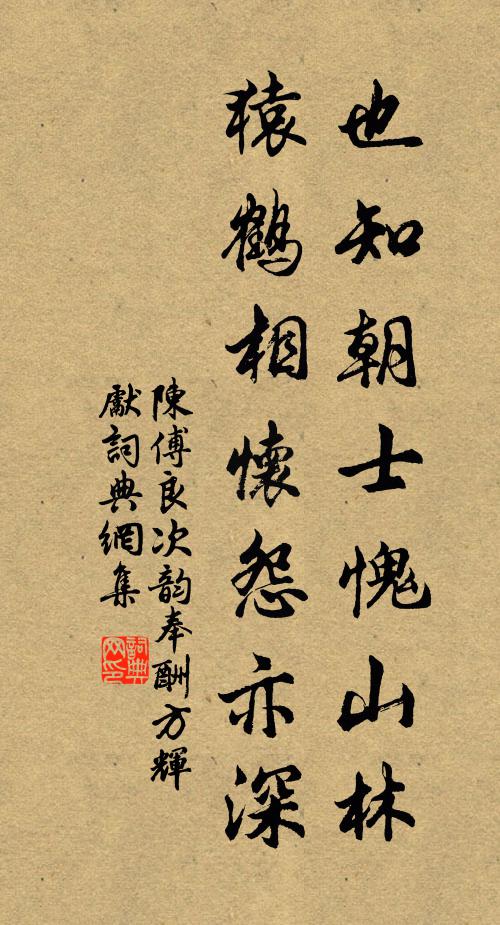 也知朝士愧山林
猿鶴相懷怨亦深
陳傅良次韵奉酬方輝
獻詞典網集
詞典网印